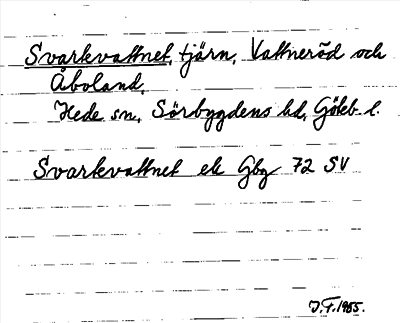 Svarkvattnet, tjärn, Vattneröd och
Åboland,
Hede sn, Sörbygdens hd, Göteb. l.
Svarkvattnet ek Gbg 72 SV
J.F. 1955.